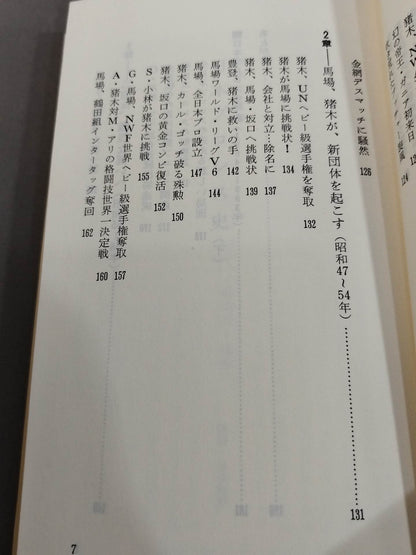 猪木、
幻の帝王・ガニア初来日
124
金網デスマッチに騒然 126
2章——馬場、猪木が、新団体を起こす(昭和47〜54年)……………131
猪木、UNヘビー級選手権を奪取 132
猪木が馬場に挑戦状! 134
猪木、会社と対立…除名に 137
猪木、馬場・坂口へ挑戦状 139
豊登、猪木に救いの手 142
馬場ワールド・リーグV6 144
馬場、全日本プロ設立 147
猪木、カール・ゴッチ破る殊勲 150
猪木、坂口の黄金コンビ復活 152
S・小林が猪木に挑戦 155
G・馬場、NWF世界ヘビー級選手権奪取 157
A・猪木対M・アリの格闘技世界一決定戦 160
馬場、鶴田組インタータッグ奪回 162
7